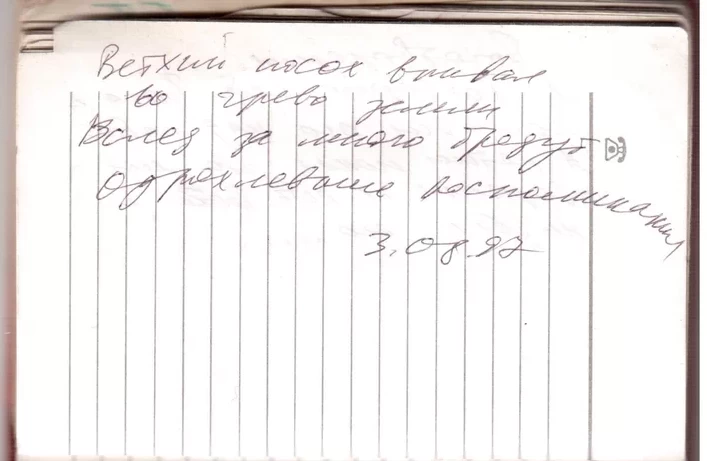 Ветхий посох вонвал
во чрево земли
Вслед за мною бредут
одряхлевшие воспоминания
3.08.97